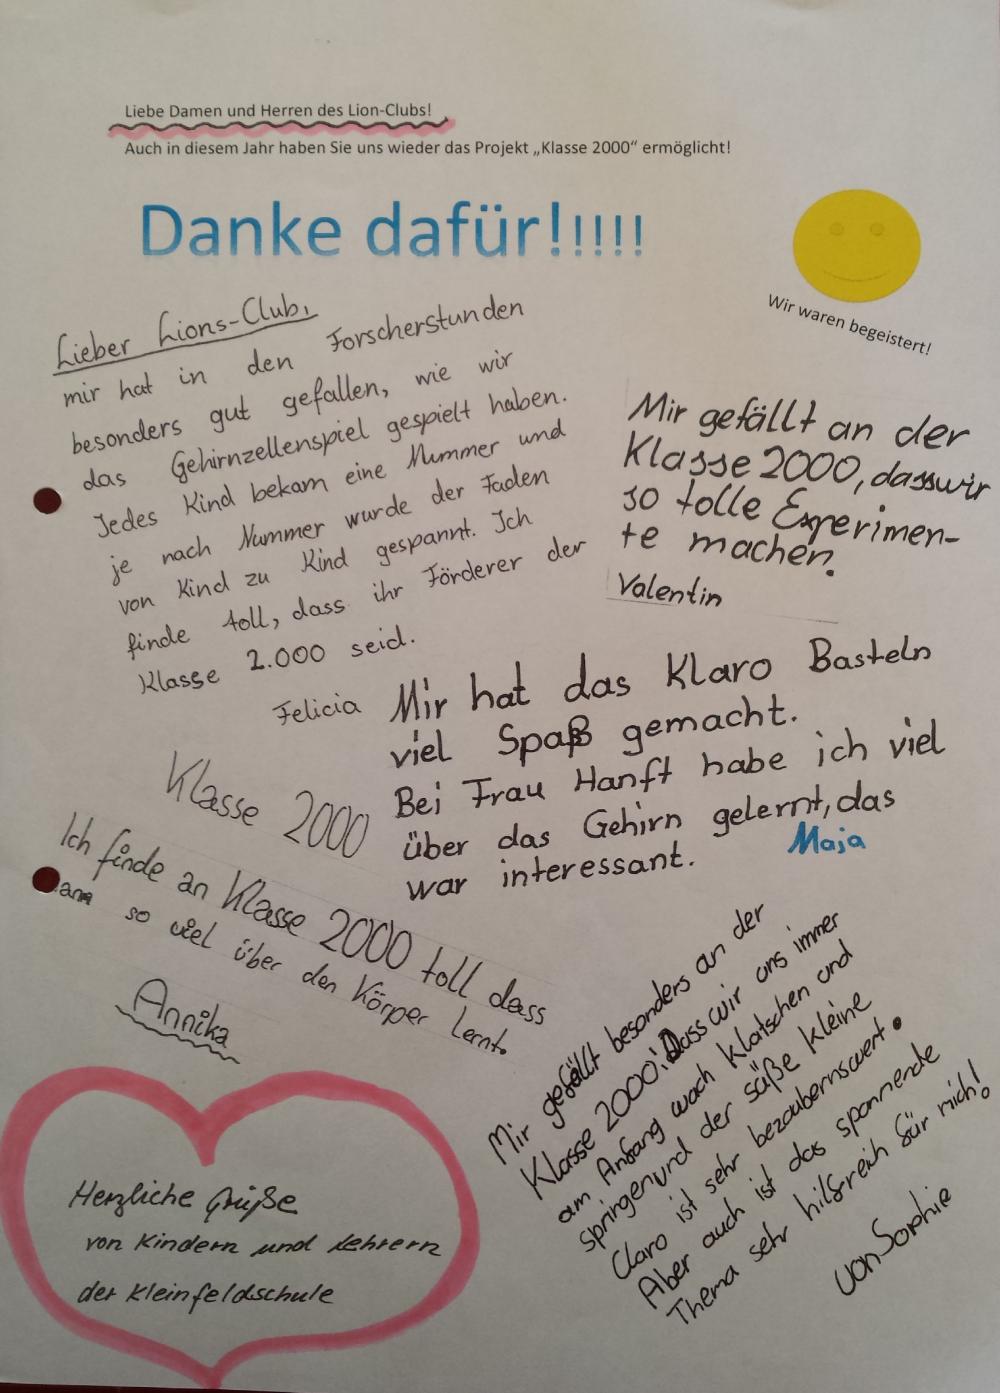 Liebe Damen und Herren des Lion-Clubs!
Auch in diesem Jahr haben Sie uns wieder das Projekt „Klasse 2000“ ermöglicht!
Danke dafür!!!!!!
Wir waren begeistert!
Lieber Lions-Club,
mir hat in den Forscherstunden
besonders gut gefallen, wie wir
das Gehirnzellenspiel gespielt haben.
Jedes Kind bekam eine Nummer und
je nach Nummer wurde der Faden
von Kind zu Kind gespannt. Ich
finde toll, dass ihr Förderer der
Klasse 2.000 seid.
Felicia
Mir gefällt an der
Klasse 2000, dass wir
so tolle Experimen-
te machen.
Valentin
Mir hat das Klaro Basteln
viel Spaß gemacht.
Bei Frau Hanft habe ich viel
über das Gehirn gelernt, das
war interessant.
Maja
Klasse 2000
Ich finde an Klasse 2000 toll dass
man so viel über den Körper lernt.
Annika
Mir gefällt besonders an der
Klasse 2000: Dass wir uns immer
am Anfang wach klatschen und
springen und der süße kleine
Claro ist sehr bezaubernswert.
Aber auch ist das spannende
Thema sehr hilfreich für mich!
von Sophie
Herzliche Grüße
von Kindern und Lehrern
der Kleinfeldschule